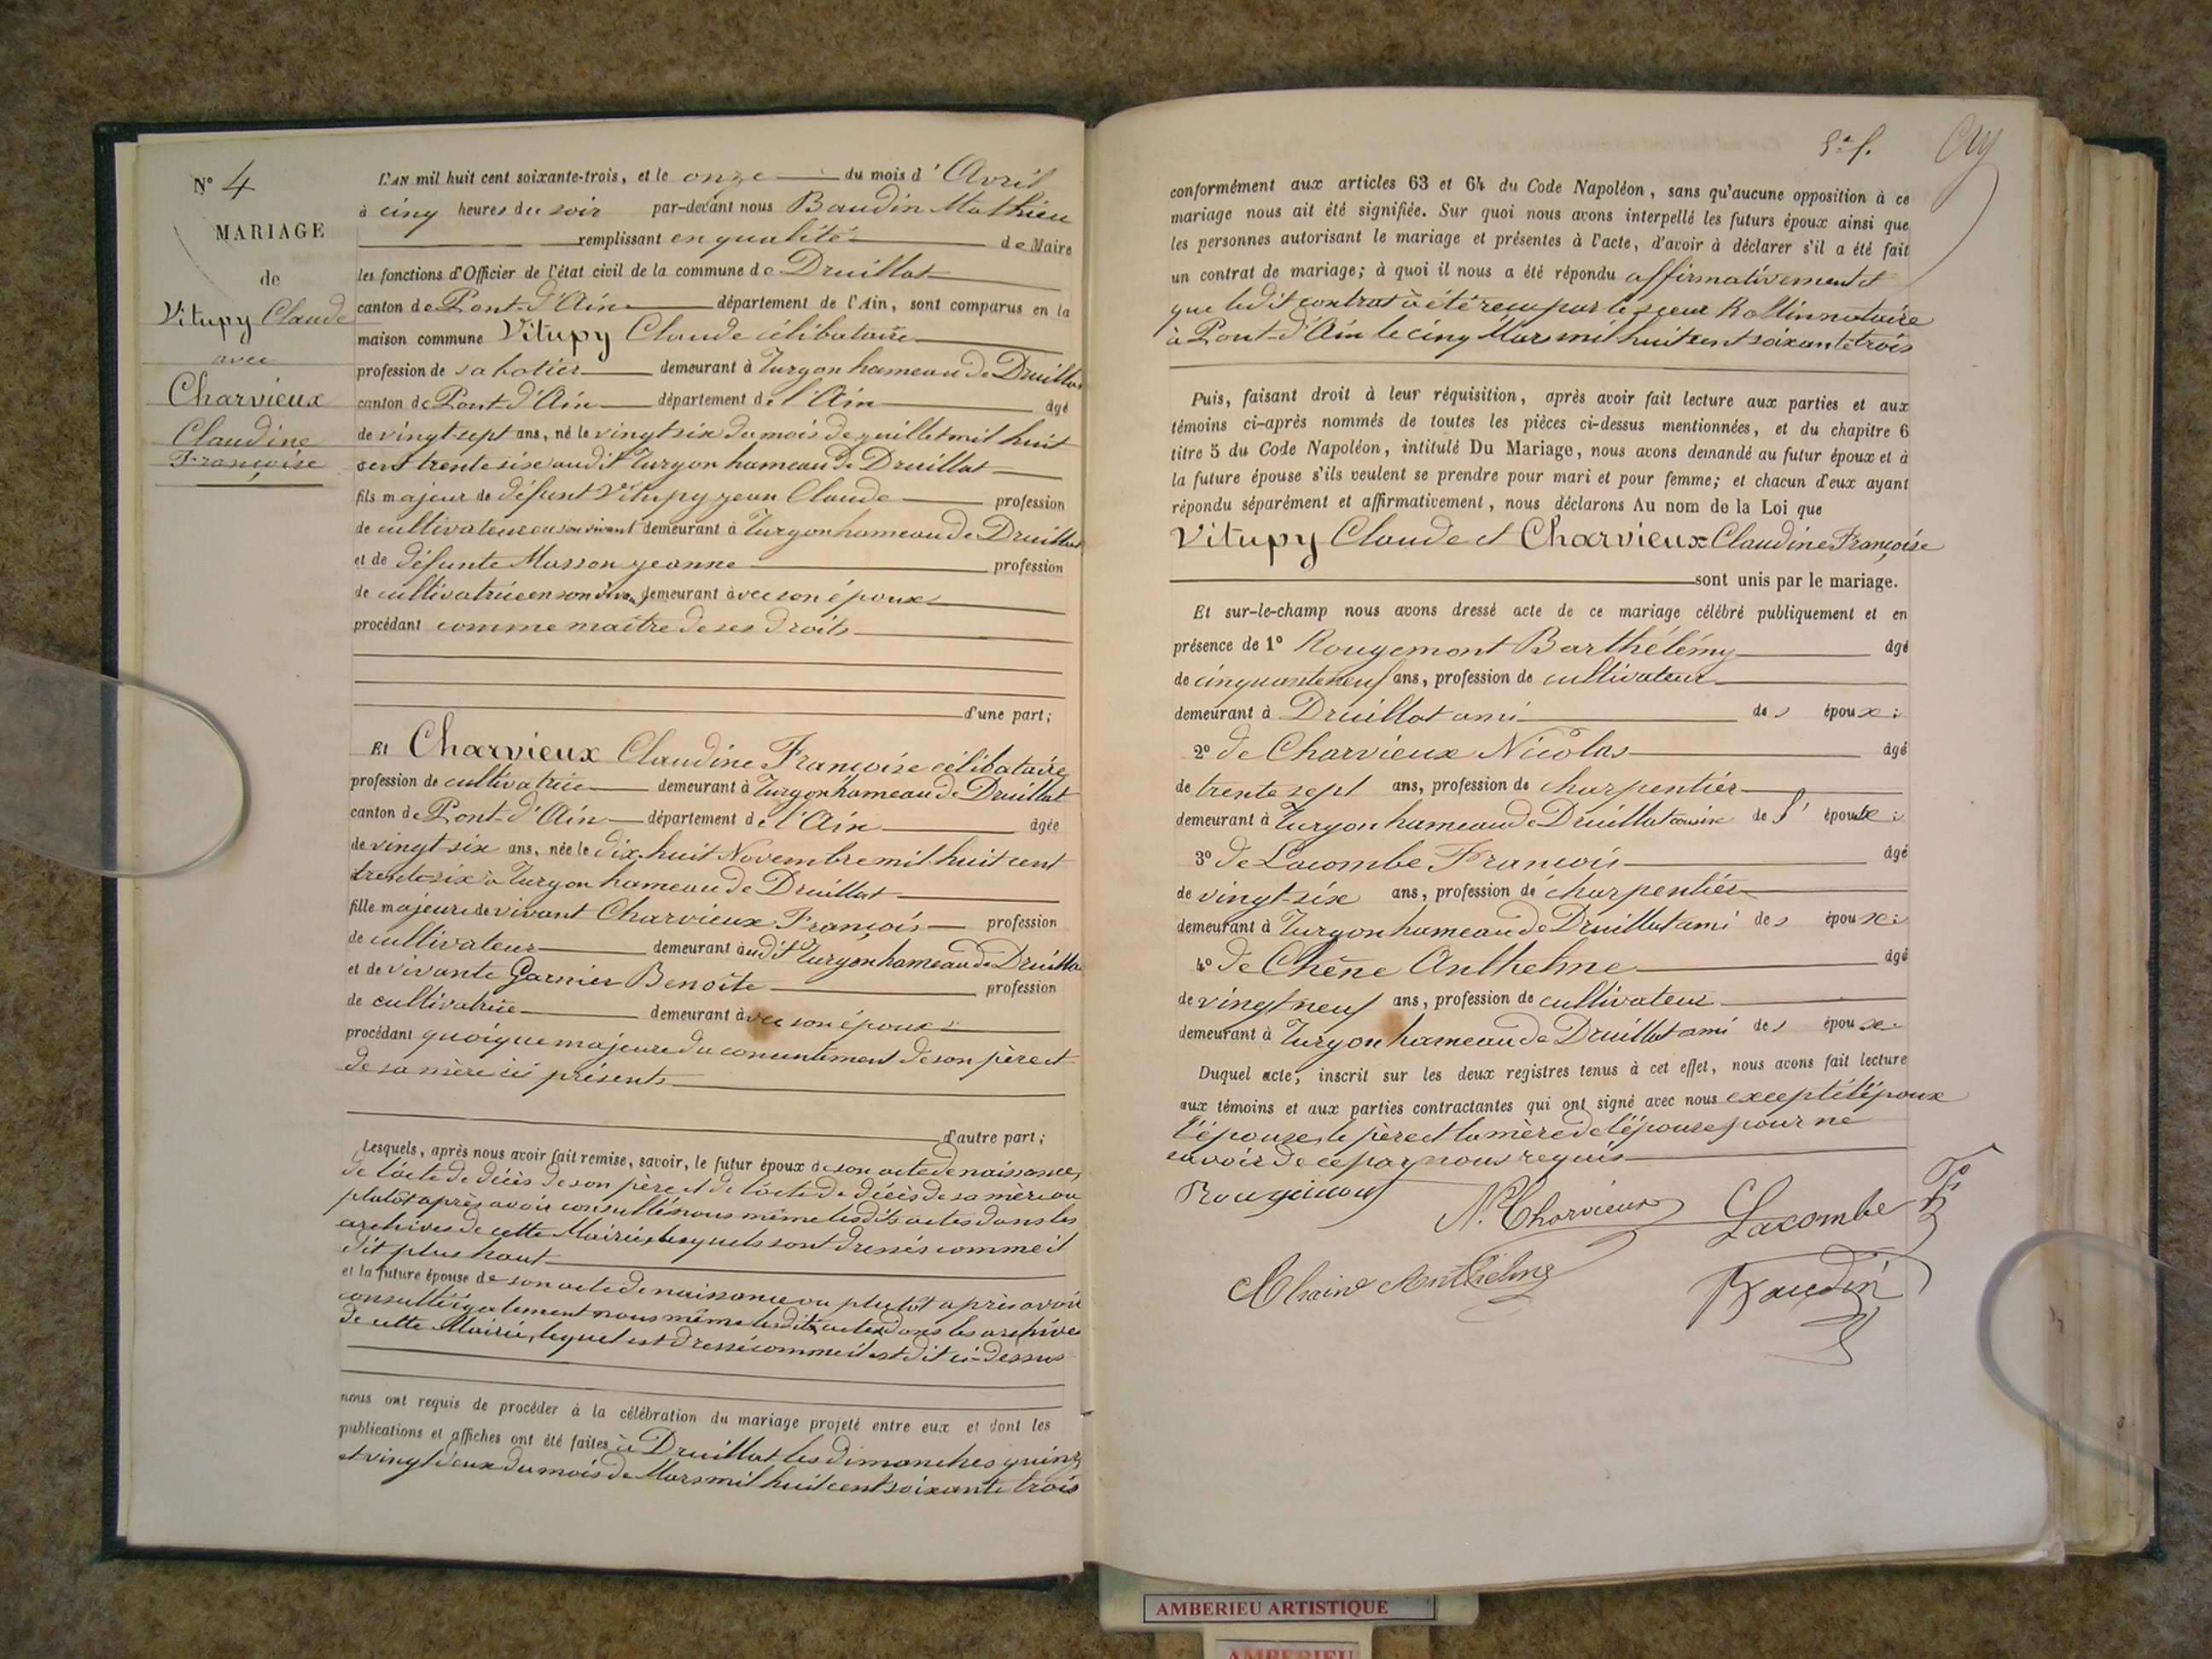 N° 4
MARIAGE
de
Vitupy Claude
avec
Charvieux
Claudine
Françoise
L'AN mil huit cent soixante-trois, et le onze du mois d'Avril
à cinq heures du soir par-devant nous Baudin Mathieu
remplissant en qualité de Maire
les fonctions d'Officier de l'état civil de la commune de Druillat
canton de Pont-d'Ain département de l'Ain, sont comparus en la
maison commune Vitupy Claude célibataire
profession de sabotier demeurant à Turgon hameau de Druillat
canton de Pont-d'Ain département de l'Ain âgé
de vingt-sept ans, né le vingt six du mois de juillet mil huit
cent trente six audit Turgon hameau de Druillat
fils majeur de défunt Vitupy jean Claude profession
de cultivateur en son vivant demeurant à Turgon hameau de Druillat
et de défunte Masson jeanne profession
de cultivatrice en son vivan demeurant avec son époux
procédant comme maître de ses droits
d'une part;
Et Charvieux Claudine Françoise célibataire
profession de cultivatrice demeurant à Turgon hameau de Druillat
canton de Pont-d'Ain département de l'Ain âgée
de vingt six ans, née le dix huit Novembre mil huit cent
trente six à Turgon hameau de Druillat
fille majeure de vivant Charvieux François profession
de cultivateur demeurant audit Turgon hameau de Druillat
et de vivante Garnier Benoîte profession
de cultivatrice demeurant avec son époux
procédant quoique majeure du consentement de son père et
de sa mère ici présents
d'autre part;
Lesquels, après nous avoir fait remise, savoir, le futur époux de son acte de naissance,
de l'acte de décès de son père et de l'acte de décès de sa mère ou
plutôt après avoir consulté nous même lesdits actes dans les
archives de cette Mairie, lesquels sont dressés comme il
dit plus haut
et la future épouse de son acte de naissance ou plutôt après avoir
consulté également nous même ledit acte dans les archives
de cette Mairie, lequel est dressé comme il est dit ci-dessus
nous ont requis de procéder à la célébration du mariage projeté entre eux et dont les
publications et affiches ont été faites à Druillat les dimanches quinze
et vingt deux du mois de Mars mil huit cent soixante trois
conformément aux articles 63 et 64 du Code Napoléon, sans qu'aucune opposition à ce
mariage nous ait été signifiée. Sur quoi nous avons interpellé les futurs époux ainsi que
les personnes autorisant le mariage et présentes à l'acte, d'avoir à déclarer s'il a été fait
un contrat de mariage; à quoi il nous a été répondu affirmativement et
que ledit contrat à été reçu par le sieur Rollin notaire
à Pont-d'Ain le cinq Mars mil huit cent soixante trois
Puis, faisant droit à leur réquisition, après avoir fait lecture aux parties et aux
témoins ci-après nommés de toutes les pièces ci-dessus mentionnées, et du chapitre 6
titre 5 du Code Napoléon, intitulé Du Mariage, nous avons demandé au futur époux et à
la future épouse s'ils veulent se prendre pour mari et pour femme; et chacun d'eux ayant
répondu séparément et affirmativement, nous déclarons Au nom de la Loi que
Vitupy Claude et Charvieux Claudine Françoise
sont unis par le mariage.
Et sur-le-champ nous avons dressé acte de ce mariage célébré publiquement et en
présence de 1° Rougemont Barthélémy âgé
de cinquante neuf ans, profession de cultivateur
demeurant à Druillat ami des époux;
2° de Charvieux Nicolas âgé
de trente sept ans, profession de charpentier
demeurant à Turgon hameau de Druillat cousin de l'épouse;
3° de Lacombe François âgé
de vingt-six ans, profession de charpentier
demeurant à Turgon hameau de Druillat ami des époux;
4° de Chêne Anthelme âgé
de vingt neuf ans, profession de cultivateur
demeurant à Turgon hameau de Druillat ami des époux.
Duquel acte, inscrit sur les deux registres tenus à cet effet, nous avons fait lecture
aux témoins et aux parties contractantes qui ont signé avec nous excepté l'époux
l'épouse, le père et la mère de l'épouse pour ne
savoir de ce par nous requis
Rougemont N. Charvieux Lacombe
Chaine Anthelme Baudin
AMBERIEU ARTISTIQUE
AMBERIEU